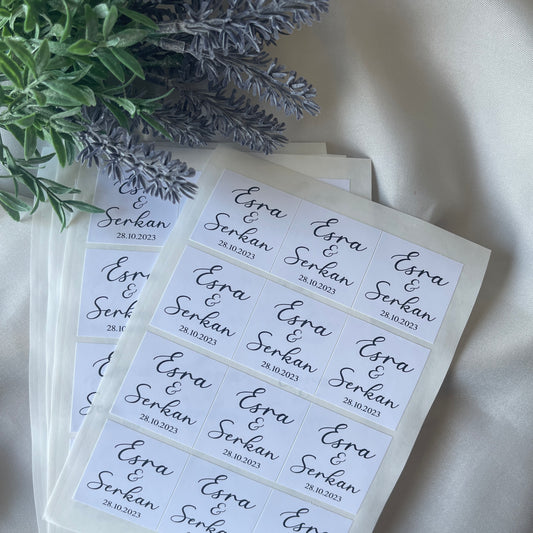 Esra
&
Serkan
28.10.2023
Esra
&
Serkan
28.10.2023
Esra
&
Serkan
28.10.2023
Esra
&
Serkan
28.10.2023
Esra
&
Serkan
28.10.2023
Esra
&
Serkan
28.10.2023
Esra
&
Serkan
28.10.2023
Esra
&
Serkan
28.10.2023
Esra
&
Serkan
28.10.2023
Esra
&
Serkan
28.10.2023
Esra
&
Serkan
Esra
&
Serkan
28.10.2023
Esra
&
Serkan
28.10.2023